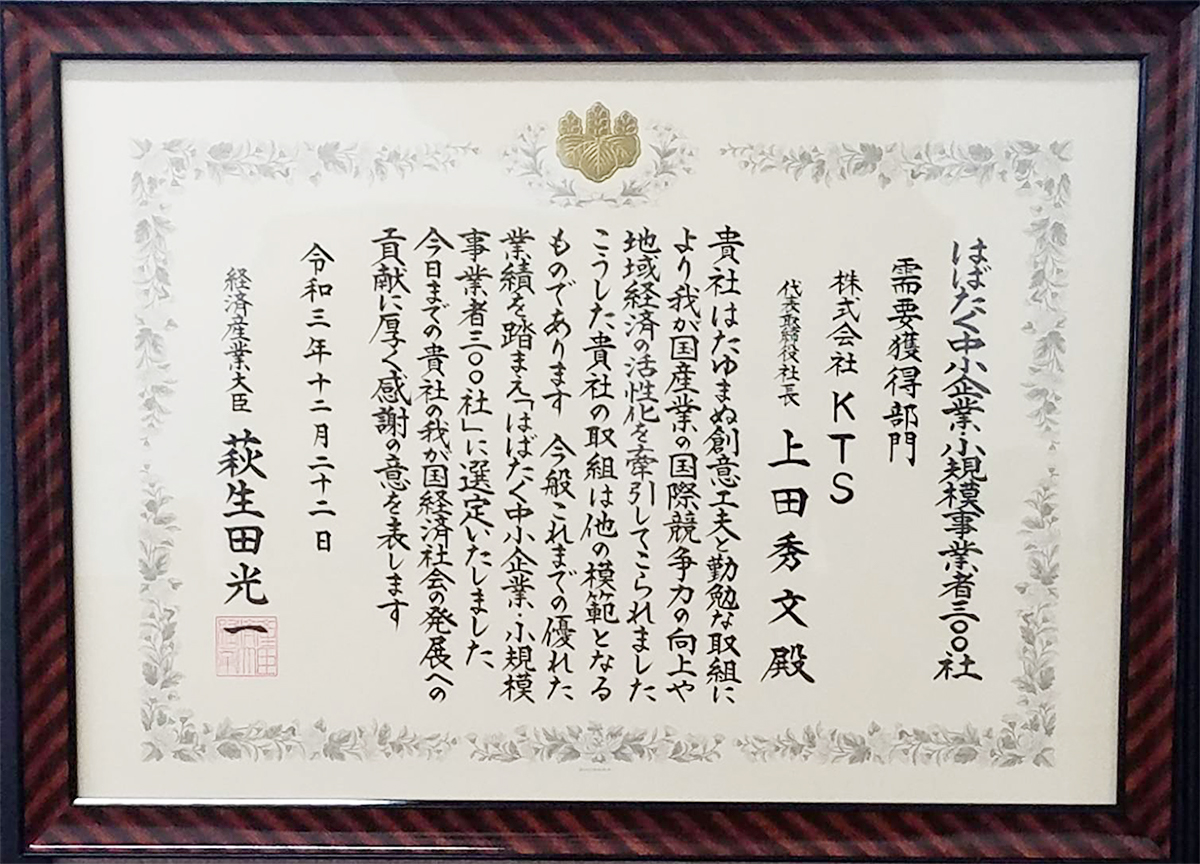 はばたく中小企業・小規模事業者三〇〇社
需要獲得部門
株式会社 KTS
代表取締役社長 上田秀文殿
貴社はたゆまぬ創意工夫と勤勉な取組に
より我が国産業の国際競争力の向上や
地域経済の活性化を牽引してこられました
こうした貴社の取組は他の模範となる
ものであります 今般これまでの優れた
業績を踏まえ「はばたく中小企業・小規模
事業者三〇〇社」に選定いたしました
今日までの貴社の我が国経済社会の発展への
貢献に厚く感謝の意を表します
令和三年十二月二十二日
経済産業大臣 萩生田光一